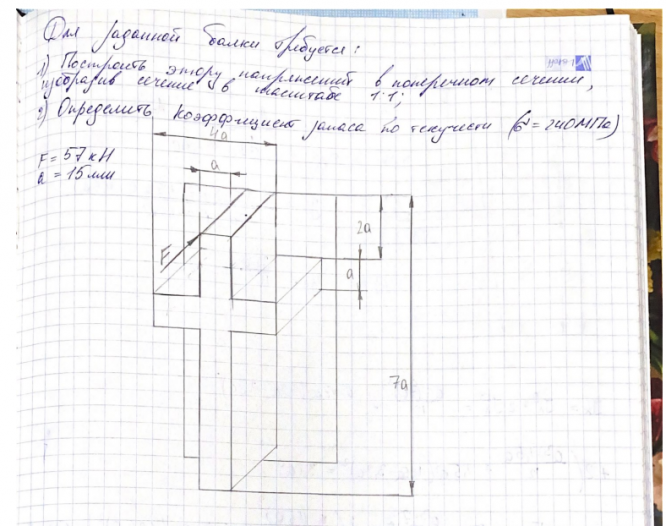 Для заданной балки требуется:
1) Построить эпюру напряжений в поперечном сечении,
изобразив сечение в масштабе 1:1;
2) Определить коэффициент запаса по текучести (σ = 240МПа)
F = 57кН
a = 15мм
4a
a
F
2a
a
7a